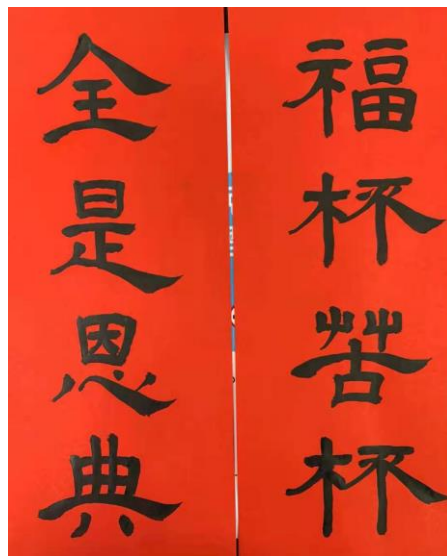 福杯苦杯
全是恩典